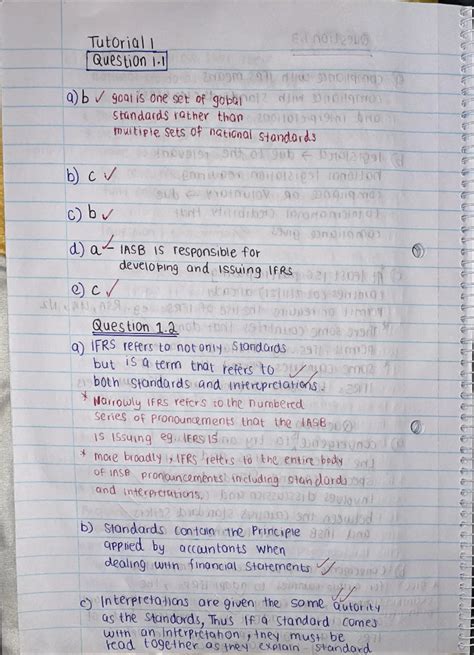 Tutorial 1
Question 1.1
a) b ✓ goal is one set of gobal
standards rather than
multiple sets of national standards
b) c ✓
c) b ✓
d) a ✓ IASB is responsible for
developing and issuing IFRS
e) c ✓
Question 1.2
a) IFRS refers to not only standards
but is a term that refers to
both standards and interpretations.
* Narrowly IFRS refers to the numbered
series of pronouncements that the IASB
is issuing eg IFRS 15
* more broadly, IFRS refers to the entire body
of IASB pronouncements including standards
and interpretations.
b) Standards contain the Principle
applied by accountants when
dealing with financial statements
c) Interpretations are given the same autority
as the standards, Thus If a standard comes
with an Interpretation, they must be
read together as they explain standard